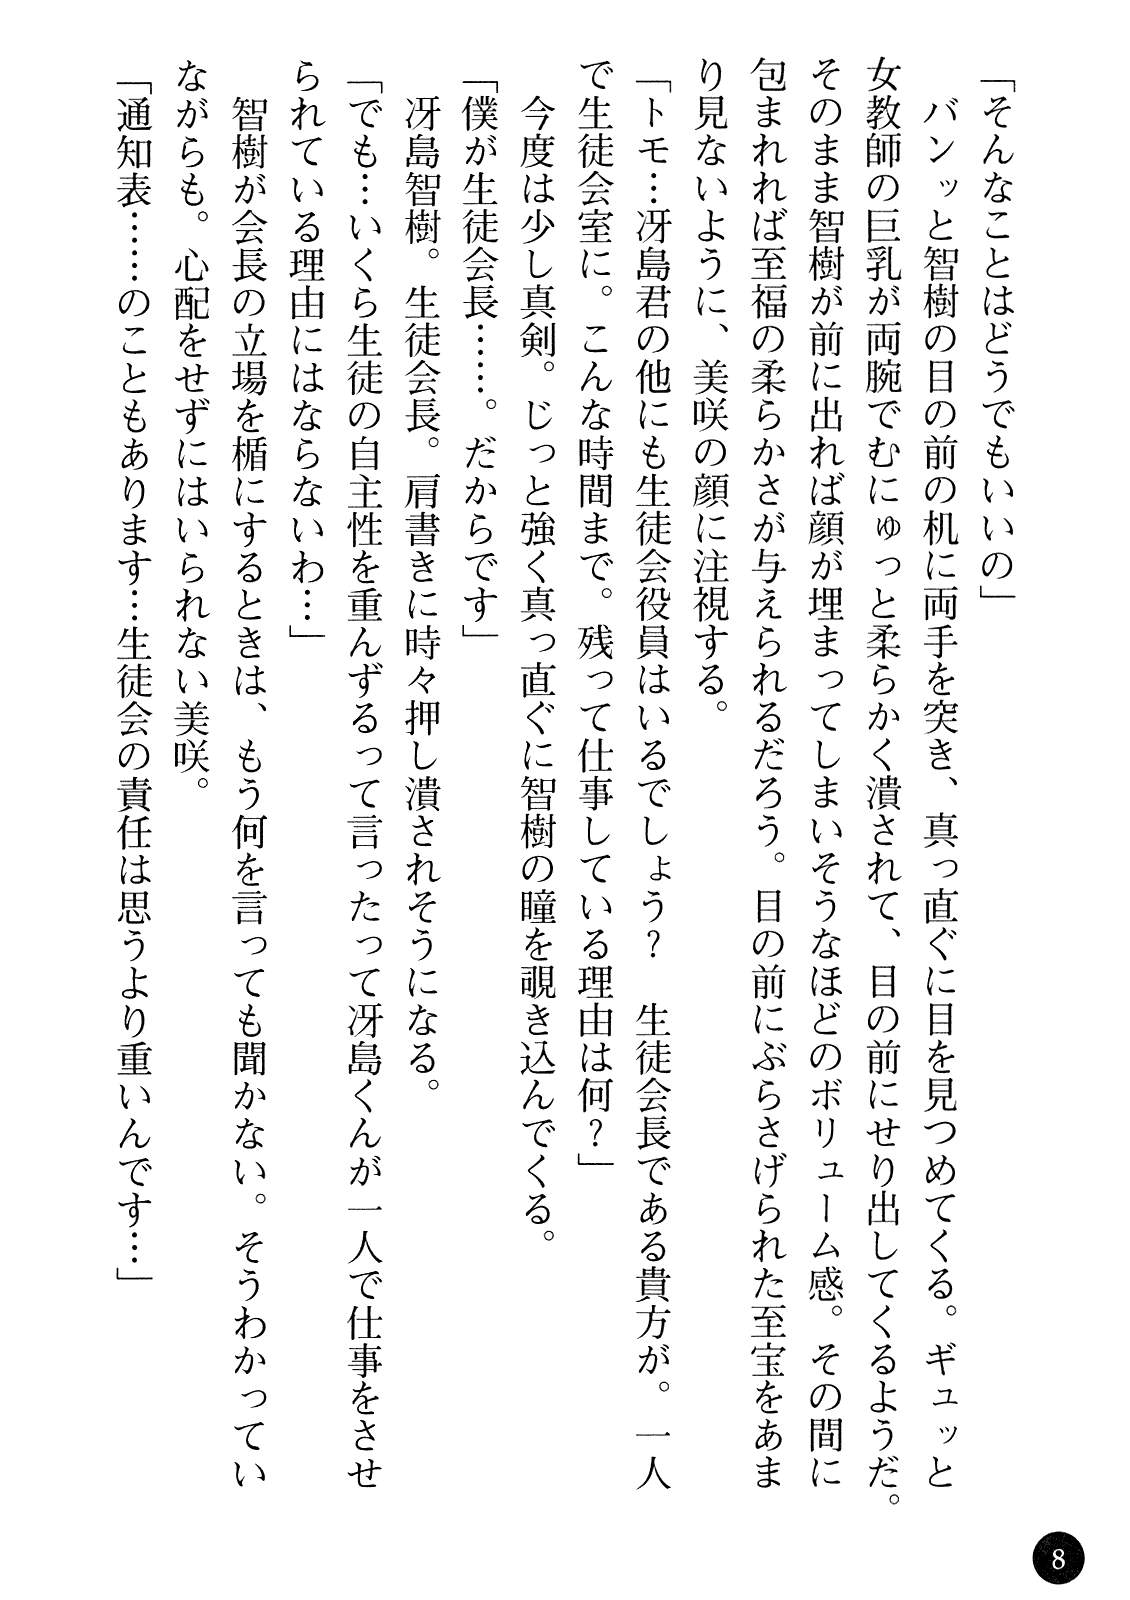 「そんなことはどうでもいいの」
　バンッと智樹の目の前の机に両手を突き、真っ直ぐに目を見つめてくる。ギュッと
女教師の巨乳が両腕でむにゅっと柔らかく潰されて、目の前にせり出してくるようだ。
そのまま智樹が前に出れば顔が埋まってしまいそうなほどのボリューム感。その間に
包まれれば至福の柔らかさが与えられるだろう。目の前にぶらさげられた至宝をあま
り見ないように、美咲の顔に注視する。
「トモ…冴島君の他にも生徒会役員はいるでしょう？　生徒会長である貴方が。一人
で生徒会室に。こんな時間まで。残って仕事している理由は何？」
　今度は少し真剣。じっと強く真っ直ぐに智樹の瞳を覗き込んでくる。
「僕が生徒会長……。だからです」
　冴島智樹。生徒会長。肩書きに時々押し潰されそうになる。
「でも…いくら生徒の自主性を重んずるって言ったって冴島くんが一人で仕事をさせ
られている理由にはならないわ…」
　智樹が会長の立場を楯にするときは、もう何を言っても聞かない。そうわかってい
ながらも。心配をせずにはいられない美咲。
「通知表……のこともあります…生徒会の責任は思うより重いんです…」
8